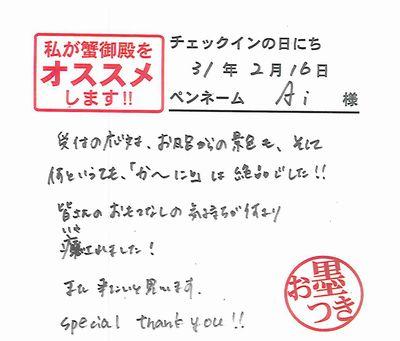 私が蟹御殿を
オススメ
します!!
チェックインの日にち
31年2月16日
ペンネーム Ai 様
受付の応対、お風呂からの景色も、そして
何といっても、「か〜にぃ」は絶品でした!!
皆さんのおもてなしの気持ちが何より
いや
癒されました!
また来たいと思います.
special thank you!!
お墨つき